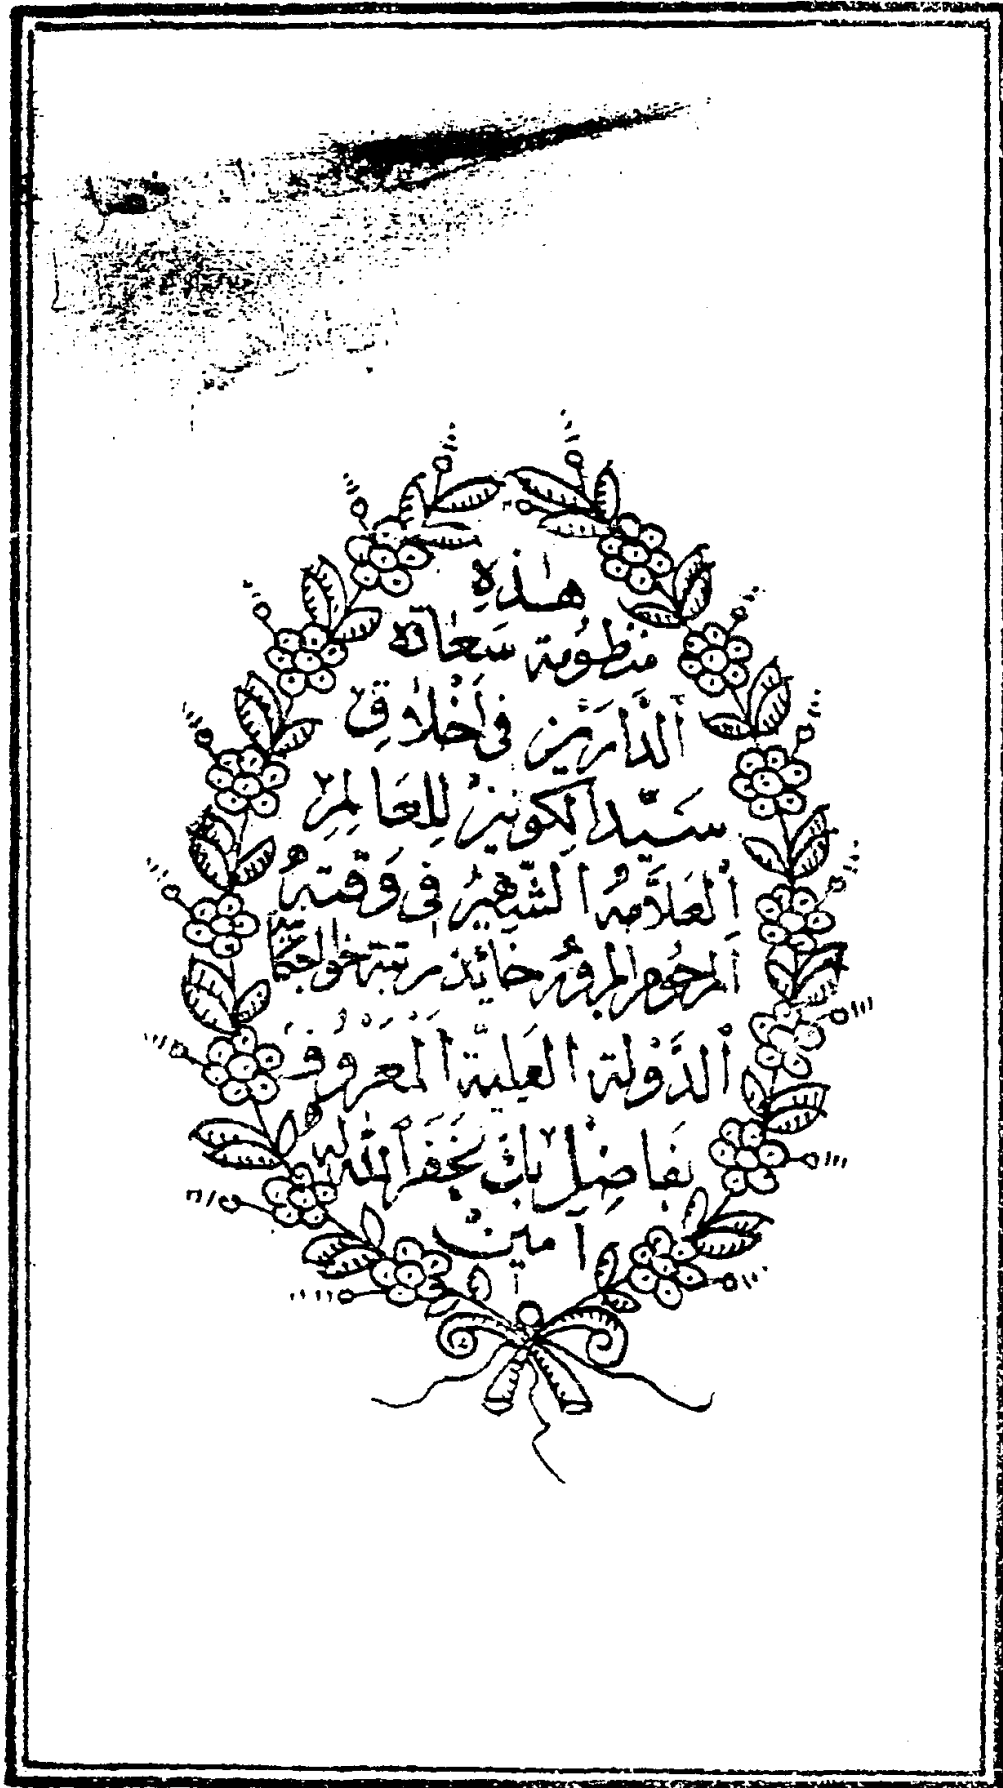 هٰذِهِ
منظومة سعادة
ٱلدَّارَيْن فى أَخْلَاق
سَيِّد ٱلكونين لِلعَالِم
ٱلعَلَّامَهُ الشَّهِيرُ فِى وَقْتِهِ
ٱلمرحوم المبرور حائذ رتبة خواجكان
ٱلدَّوْلَة العَلِيَّة ٱلْمَعْرُوف
بفاضِل بك غَفَرَ ٱللّٰه لَهُ
آمين